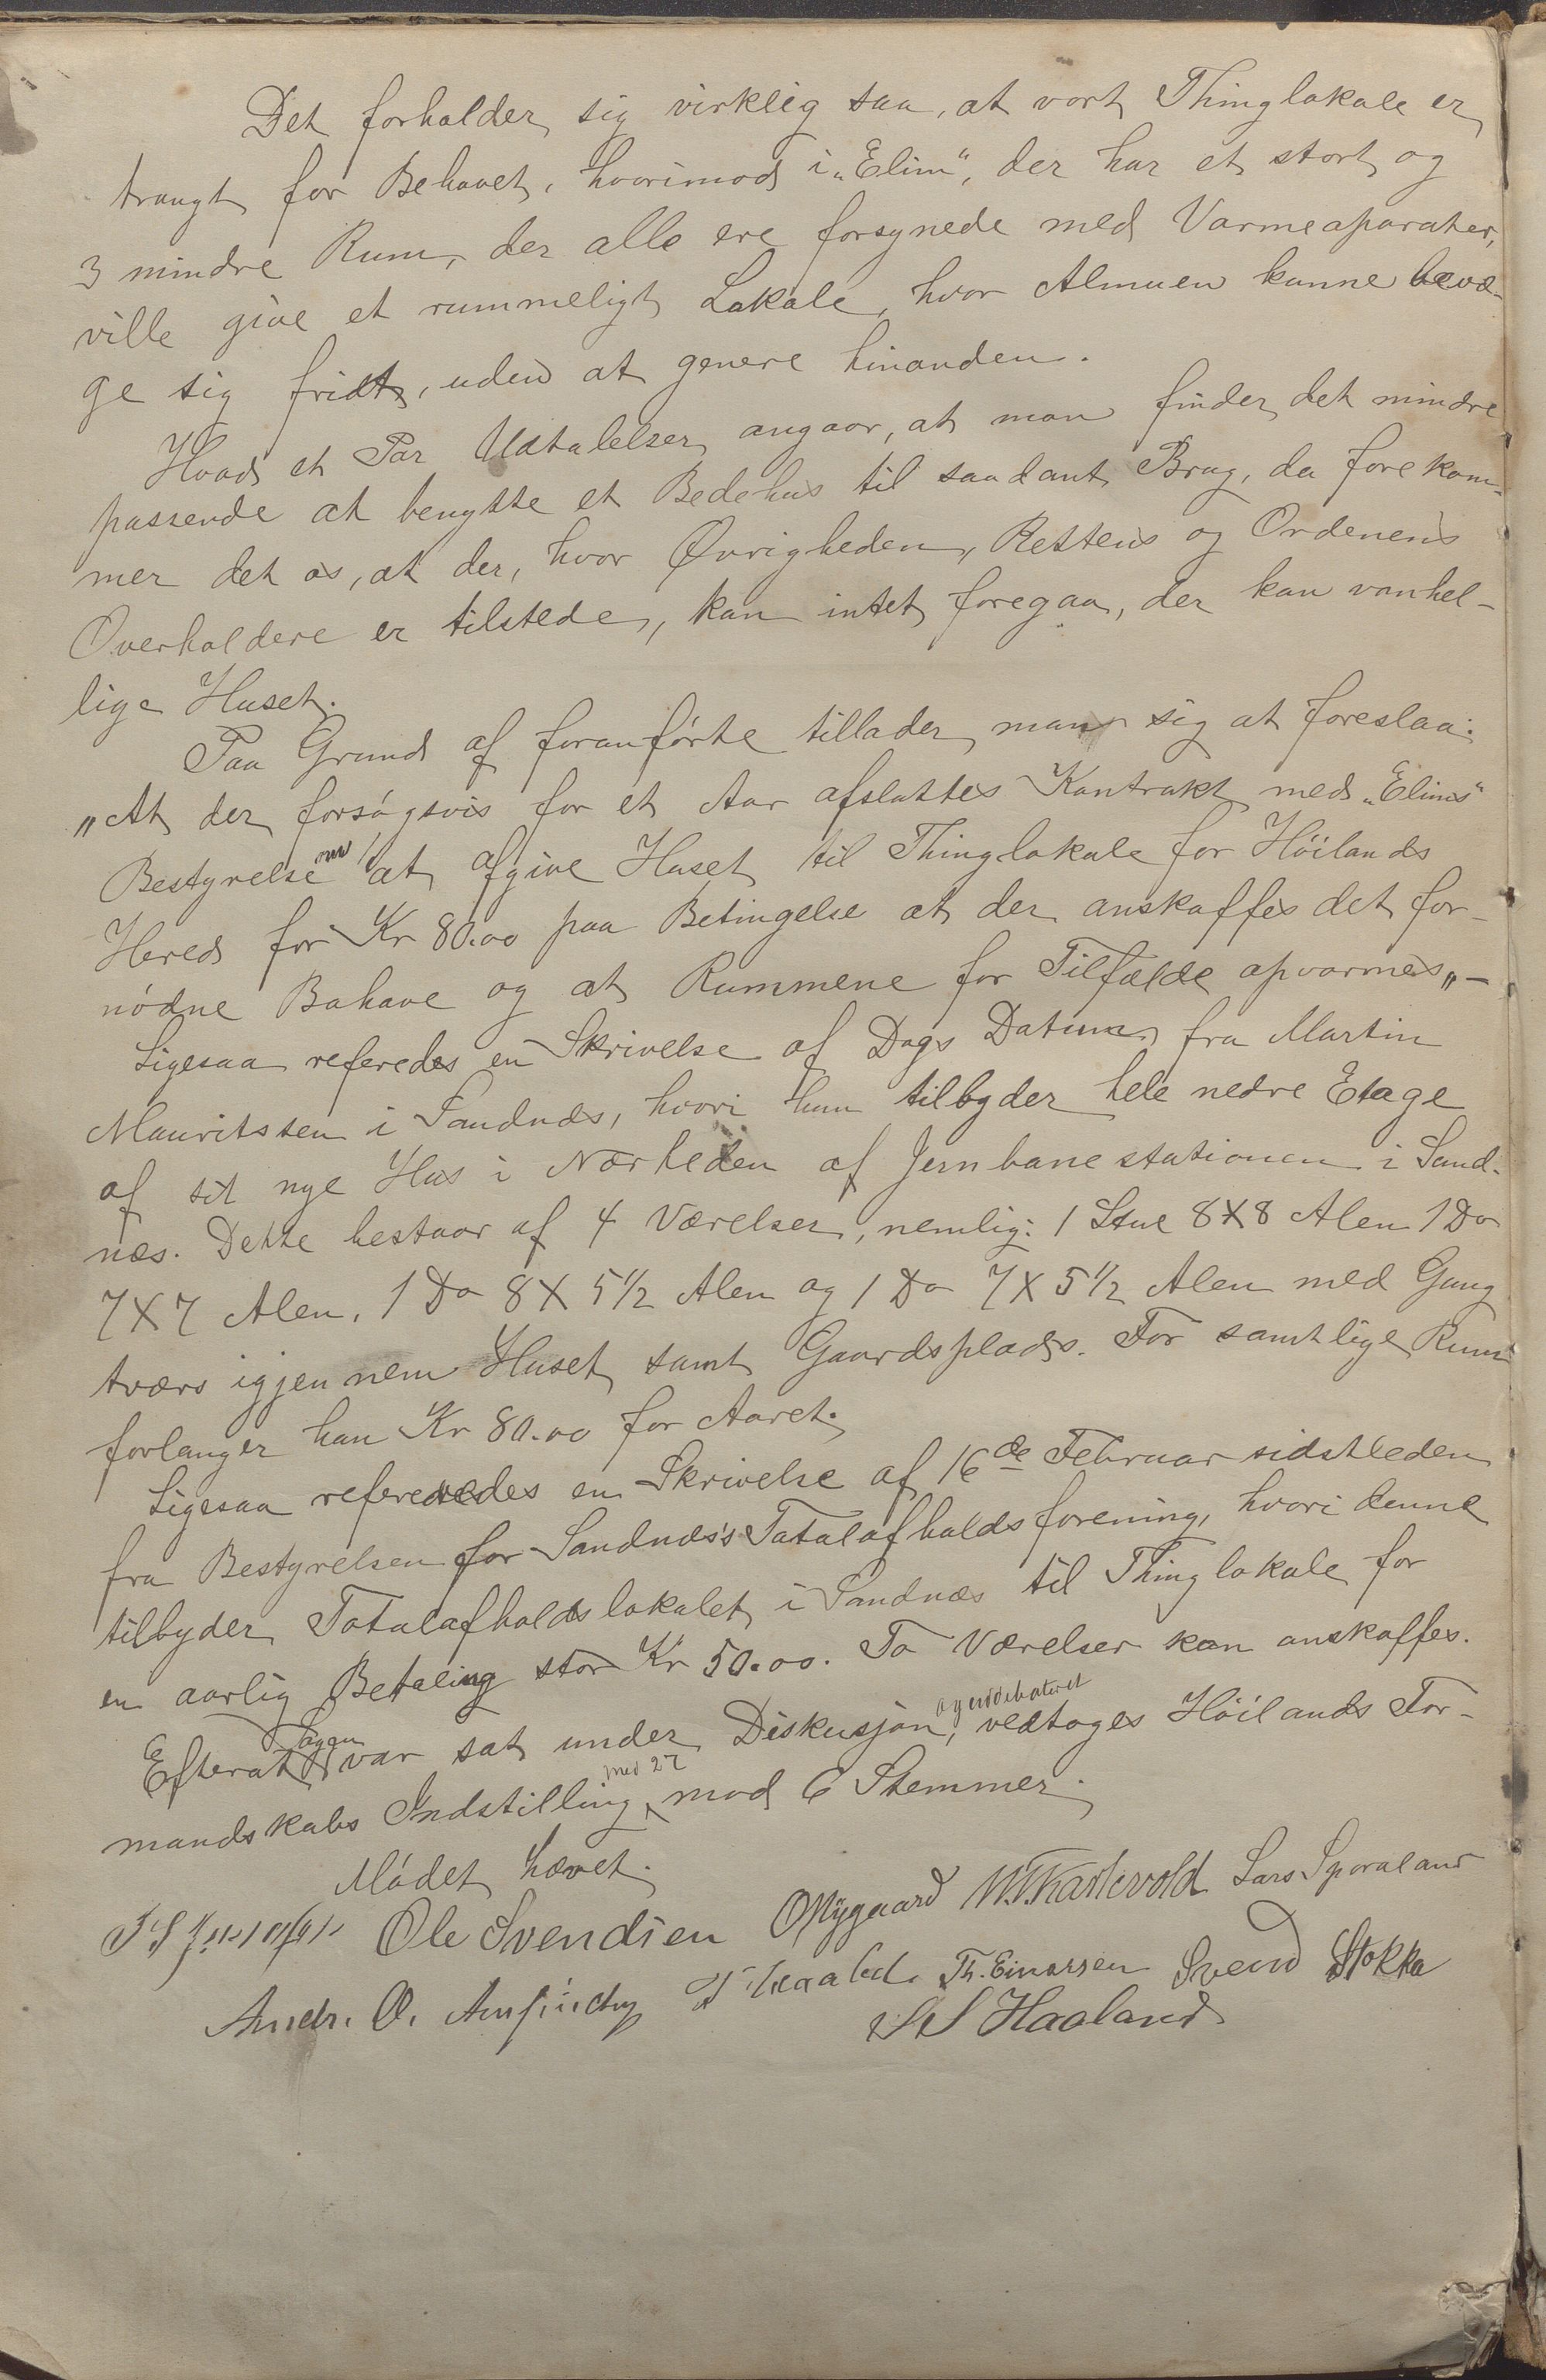 Det forholder sig virklig saa, at vort Thinglokale er
trangt for Behovet, hvorimod i „Elim“, der har et stort og
3 mindre Rum, der alle ere forsynede med Varmeaparater,
ville give et rummeligt Lokale, hvor Almuen kunne bevæ-
ge sig fridt, uden at genere hinanden.
Hvad et Par Udtalelser angaar, at man finder det mindre
passende at benytte et Bedehus til saadant Brug, da forekom-
mer det os, at der, hvor Øvrigheden, Rettens og Ordenens
Overholdere er tilstede, kan intet foregaa, der kan vanhel-
lige Huset.
Paa Grund af foranförte tillader man sig at foreslaa:
„At der forsögsvis for et Aar afsluttes Kontrakt med „Elims“
Bestyrelse om at afgive Huset til Thinglokale for Höilands
Hered for Kr 80.00 paa Betingelse at der anskaffes det for-
nödne Bohave og at Rummene for Tilfælde opvarmes„ -
Ligesaa referedes en Skrivelse af Dags Datum fra Martin
Mauritssen i Sandnæs, hvori han tilbyder hele nedre Etage
af sit nye Hus i Nærheden af Jernbanestationen i Sand-
næs. Dette bestaar af 4 Værelser, nemlig: 1 Stue 8X8 Alen 1 Do
7X7 Alen, 1 Do 8X5 1/2 Alen og 1 Do 7X5 1/2 Alen med Gang
tværs igjennem Huset samt Gaardsplads. For samtlige Rum
forlanger han Kr 80.00 for Aaret.
Ligesaa refereredes en Skrivelse af 16de Februar sidstleden
fra Bestyrelsen for Sandnæs's Totalafholdsforening, hvori denne
tilbyder Totalafholdslokalet i Sandnæs til Thinglokale for
en aarlig Betaling stor Kr 50.00. To Værelser kan anskaffes.
Efterat Sagen var sat under Diskusjon, og uddebateret vedtoges Höilands For-
mandskabs Indstilling med 27 mod 6 Stemmer.
Mödet hævet.
Ole Svendsen O Nygaard Lars Sporaland
Andr. O. Th. Einarsen Svend Stokka
Haaland